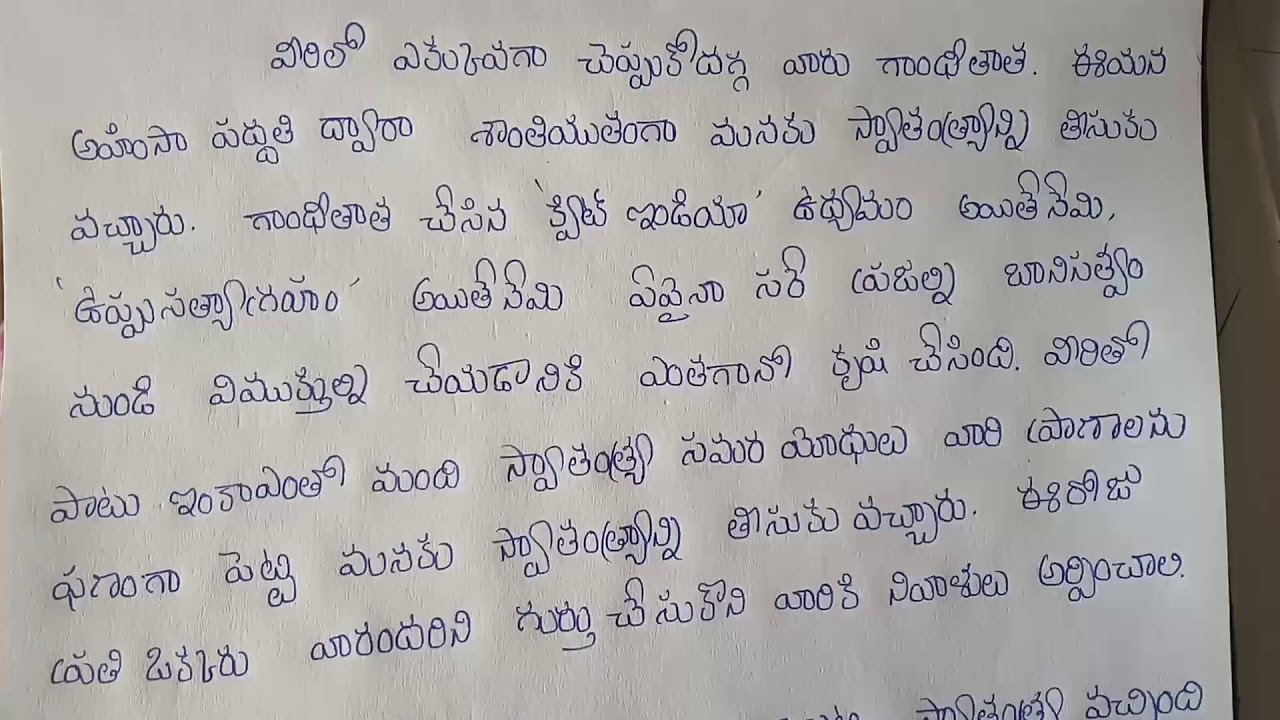 వీరిలో ఎక్కువగా చెప్పుకోదగ్గ వారు గాంధీతాత. ఈయన
అహింసా పద్దతి ద్వారా శాంతియుతంగా మనకు స్వాతంత్ర్యాన్ని తీసుకు
వచ్చారు. గాంధీతాత చేసిన 'క్విట్ ఇండియా' ఉద్యమం అయితేనేమి,
'ఉప్పుసత్యాగ్రహం' అయితేనేమి ఏదైనా సరే ప్రజల్ని బానిసత్వం
నుండి విముక్తుల్ని చేయడానికి ఎంతగానో కృషి చేసింది. వీరితో
పాటు ఇంకాఎంతో మంది స్వాతంత్ర్య సమర యోధులు వారి ప్రాణాలను
ఫణంగా పెట్టి మనకు స్వాతంత్ర్యాన్ని తీసుకు వచ్చారు. ఈరోజు
ప్రతి ఒక్కరు వారందరిని గుర్తు చేసుకొని వారికి నివాళులు అర్పించాలి.
స్వాతంత్ర్య వచ్చింది